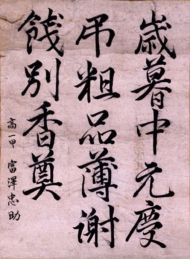 歳暮中元慶
弔粗品薄謝
餞別香奠
高一甲 富澤忠助